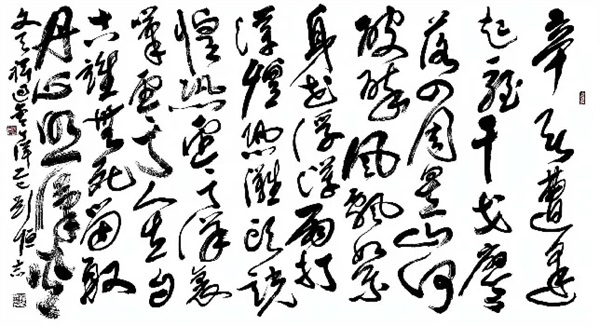 辛苦遭逢
起一經干戈寥
落四周星山河
破碎風飄絮
身世浮沉雨打
萍惶恐灘頭說
惶恐零丁洋裏
嘆零丁人生自
古誰無死留取
丹心照汗青
文天祥過零丁洋乙巳